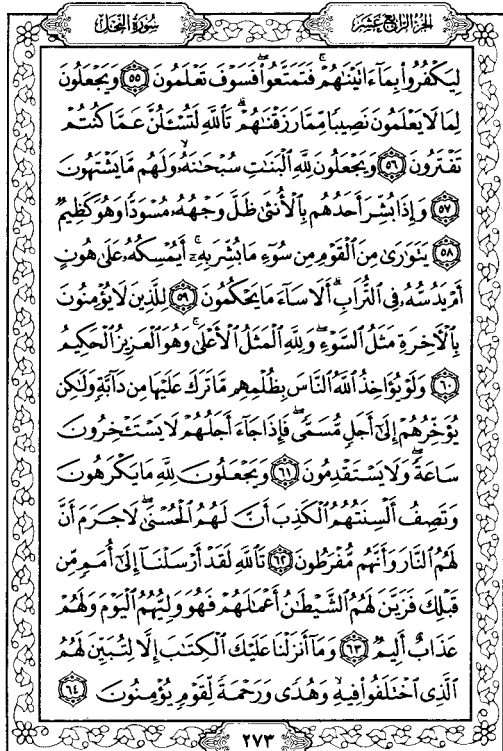 سُورَةُ النَّحْلِ
الجُزْءُ الرَّابِعَ عَشَرَ
لِيَكْفُرُوا۟ بِمَآ ءَاتَيْنَٰهُمْ ۚ فَتَمَتَّعُوا۟ ۖ فَسَوْفَ تَعْلَمُونَ ٥٥ وَيَجْعَلُونَ
لِمَا لَا يَعْلَمُونَ نَصِيبًا مِّمَّا رَزَقْنَٰهُمْ ۗ تَٱللَّهِ لَتُسْـَٔلُنَّ عَمَّا كُنتُمْ
تَفْتَرُونَ ٥٦ وَيَجْعَلُونَ لِلَّهِ ٱلْبَنَٰتِ سُبْحَٰنَهُۥ ۙ وَلَهُم مَّا يَشْتَهُونَ
٥٧ وَإِذَا بُشِّرَ أَحَدُهُم بِٱلْأُنثَىٰ ظَلَّ وَجْهُهُۥ مُسْوَدًّا وَهُوَ كَظِيمٌ
٥٨ يَتَوَٰرَىٰ مِنَ ٱلْقَوْمِ مِن سُوٓءِ مَا بُشِّرَ بِهِۦٓ ۚ أَيُمْسِكُهُۥ عَلَىٰ هُونٍ
أَمْ يَدُسُّهُۥ فِى ٱلتُّرَابِ ۗ أَلَا سَآءَ مَا يَحْكُمُونَ ٥٩ لِلَّذِينَ لَا يُؤْمِنُونَ
بِٱلْءَاخِرَةِ مَثَلُ ٱلسَّوْءِ ۖ وَلِلَّهِ ٱلْمَثَلُ ٱلْأَعْلَىٰ ۚ وَهُوَ ٱلْعَزِيزُ ٱلْحَكِيمُ
٦٠ وَلَوْ يُؤَاخِذُ ٱللَّهُ ٱلنَّاسَ بِظُلْمِهِم مَّا تَرَكَ عَلَيْهَا مِن دَآبَّةٍ وَلَٰكِن
يُؤَخِّرُهُمْ إِلَىٰٓ أَجَلٍ مُّسَمًّى ۖ فَإِذَا جَآءَ أَجَلُهُمْ لَا يَسْتَـْٔخِرُونَ
سَاعَةً ۖ وَلَا يَسْتَقْدِمُونَ ٦١ وَيَجْعَلُونَ لِلَّهِ مَا يَكْرَهُونَ
وَتَصِفُ أَلْسِنَتُهُمُ ٱلْكَذِبَ أَنَّ لَهُمُ ٱلْحُسْنَىٰ ۖ لَا جَرَمَ أَنَّ
لَهُمُ ٱلنَّارَ وَأَنَّهُم مُّفْرَطُونَ ٦٢ تَٱللَّهِ لَقَدْ أَرْسَلْنَآ إِلَىٰٓ أُمَمٍ مِّن
قَبْلِكَ فَزَيَّنَ لَهُمُ ٱلشَّيْطَٰنُ أَعْمَٰلَهُمْ فَهُوَ وَلِيُّهُمُ ٱلْيَوْمَ وَلَهُمْ
عَذَابٌ أَلِيمٌ ٦٣ وَمَآ أَنزَلْنَا عَلَيْكَ ٱلْكِتَٰبَ إِلَّا لِتُبَيِّنَ لَهُمُ
ٱلَّذِى ٱخْتَلَفُوا۟ فِيهِ ۙ وَهُدًى وَرَحْمَةً لِّقَوْمٍ يُؤْمِنُونَ ٦٤
٢٧٣